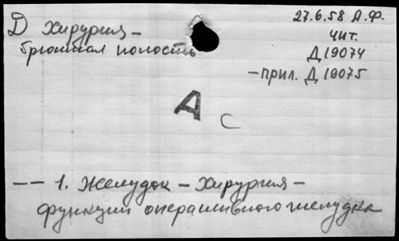 Д Хирургия –
брюшная полость
27.6.58 А.Ф.
чит.
Д 19074
– прил. Д 19075
А с
–– 1. Желудок – Хирургия –
функции оперативного желудка